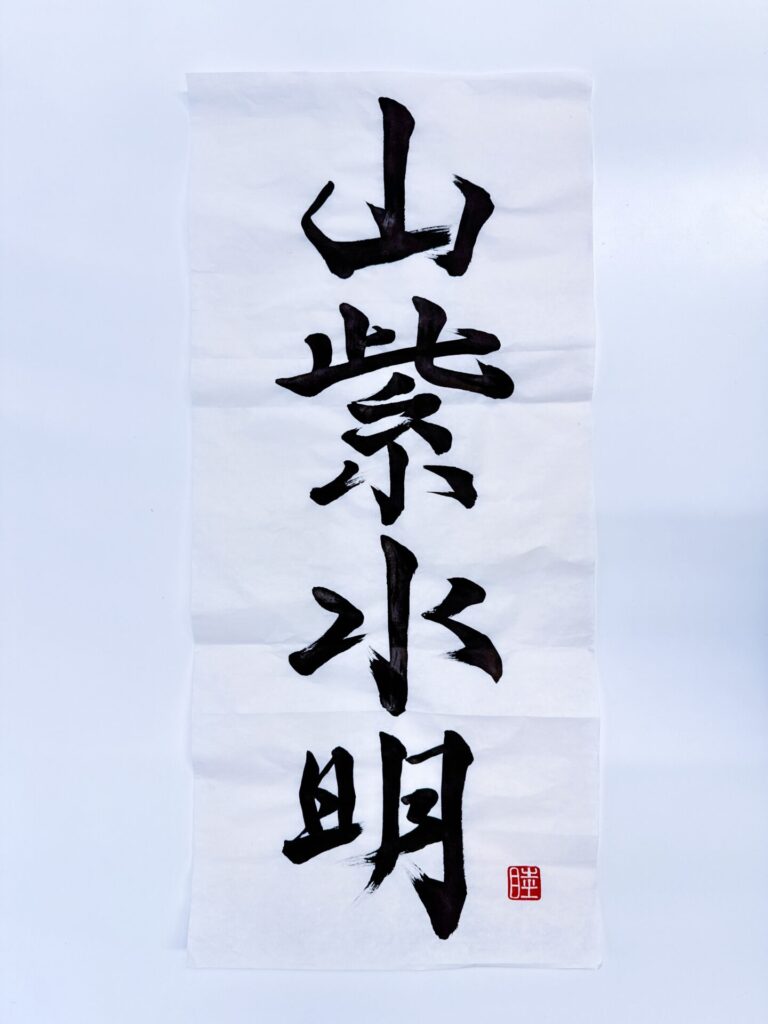 山紫水明
睦